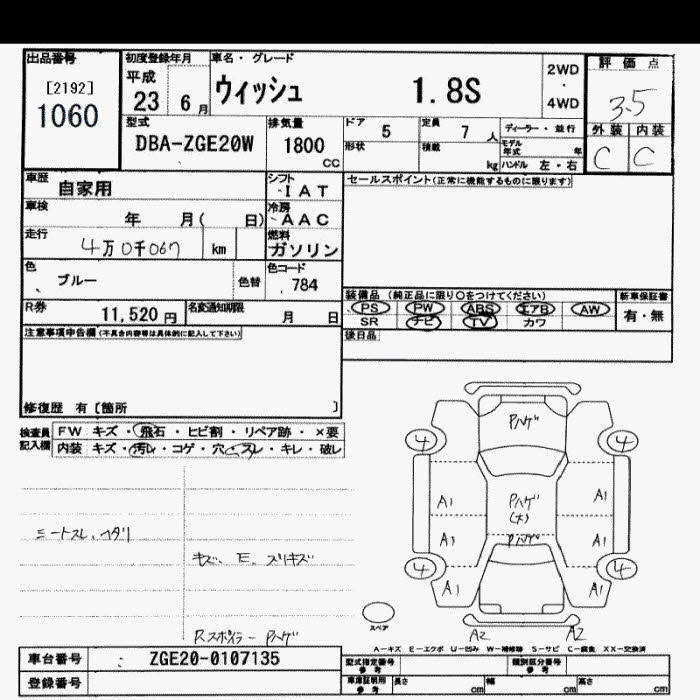 出品番号
[2192]
1060
初度登録年月
平成
23 6月
車名・グレード
ウィッシュ 1.8S
2WD
・
4WD
評価点
3.5
外装 内装
C C
型式
DBA-ZGE20W
排気量
1800
CC
ドア 5
定員 7 人
ディーラー・並行
形状
積載 kg
モデル年式 年
ハンドル 左・右
車歴 自家用
シフト
IAT
セールスポイント(正常に機能するものに限ります)
車検 年 月( 日)
冷房
AAC
走行 4万0千067 km
燃料
ガソリン
色 ブルー 色替
色コード
784
装備品 (純正品に限り○をつけてください)
新車保証書
PS PW ABS エアB AW
有・無
SR ナビ TV カワ
R券 11,520円
名変通知期限 月 日
後日品
注意事項申告欄(不具合内容等は具体的に記入して下さい)
修復歴 有[箇所 ]
検査員記入欄
FW キズ・飛石・ヒビ割・リペア跡・×要
内装 キズ・汚レ・コゲ・穴・スレ・キレ・破レ
Pハゲ
4 4
A1 Pハゲ A1
(大)
A1 Pハゲ A1
4 4
A1 A1
シートスレ、ヘタリ
キズ、E、スリキズ
スペア
Rスポイラー Pハゲ
A2 A2
A-キズ E-エクボ U-凹み W-補修跡 S-サビ C-腐食 XX-交換済
車台番号 ZGE20-0107135
型式指定番号 参考
類別区分番号 参考
登録番号
車庫証明用 参考
長さ cm 幅 cm 高さ cm